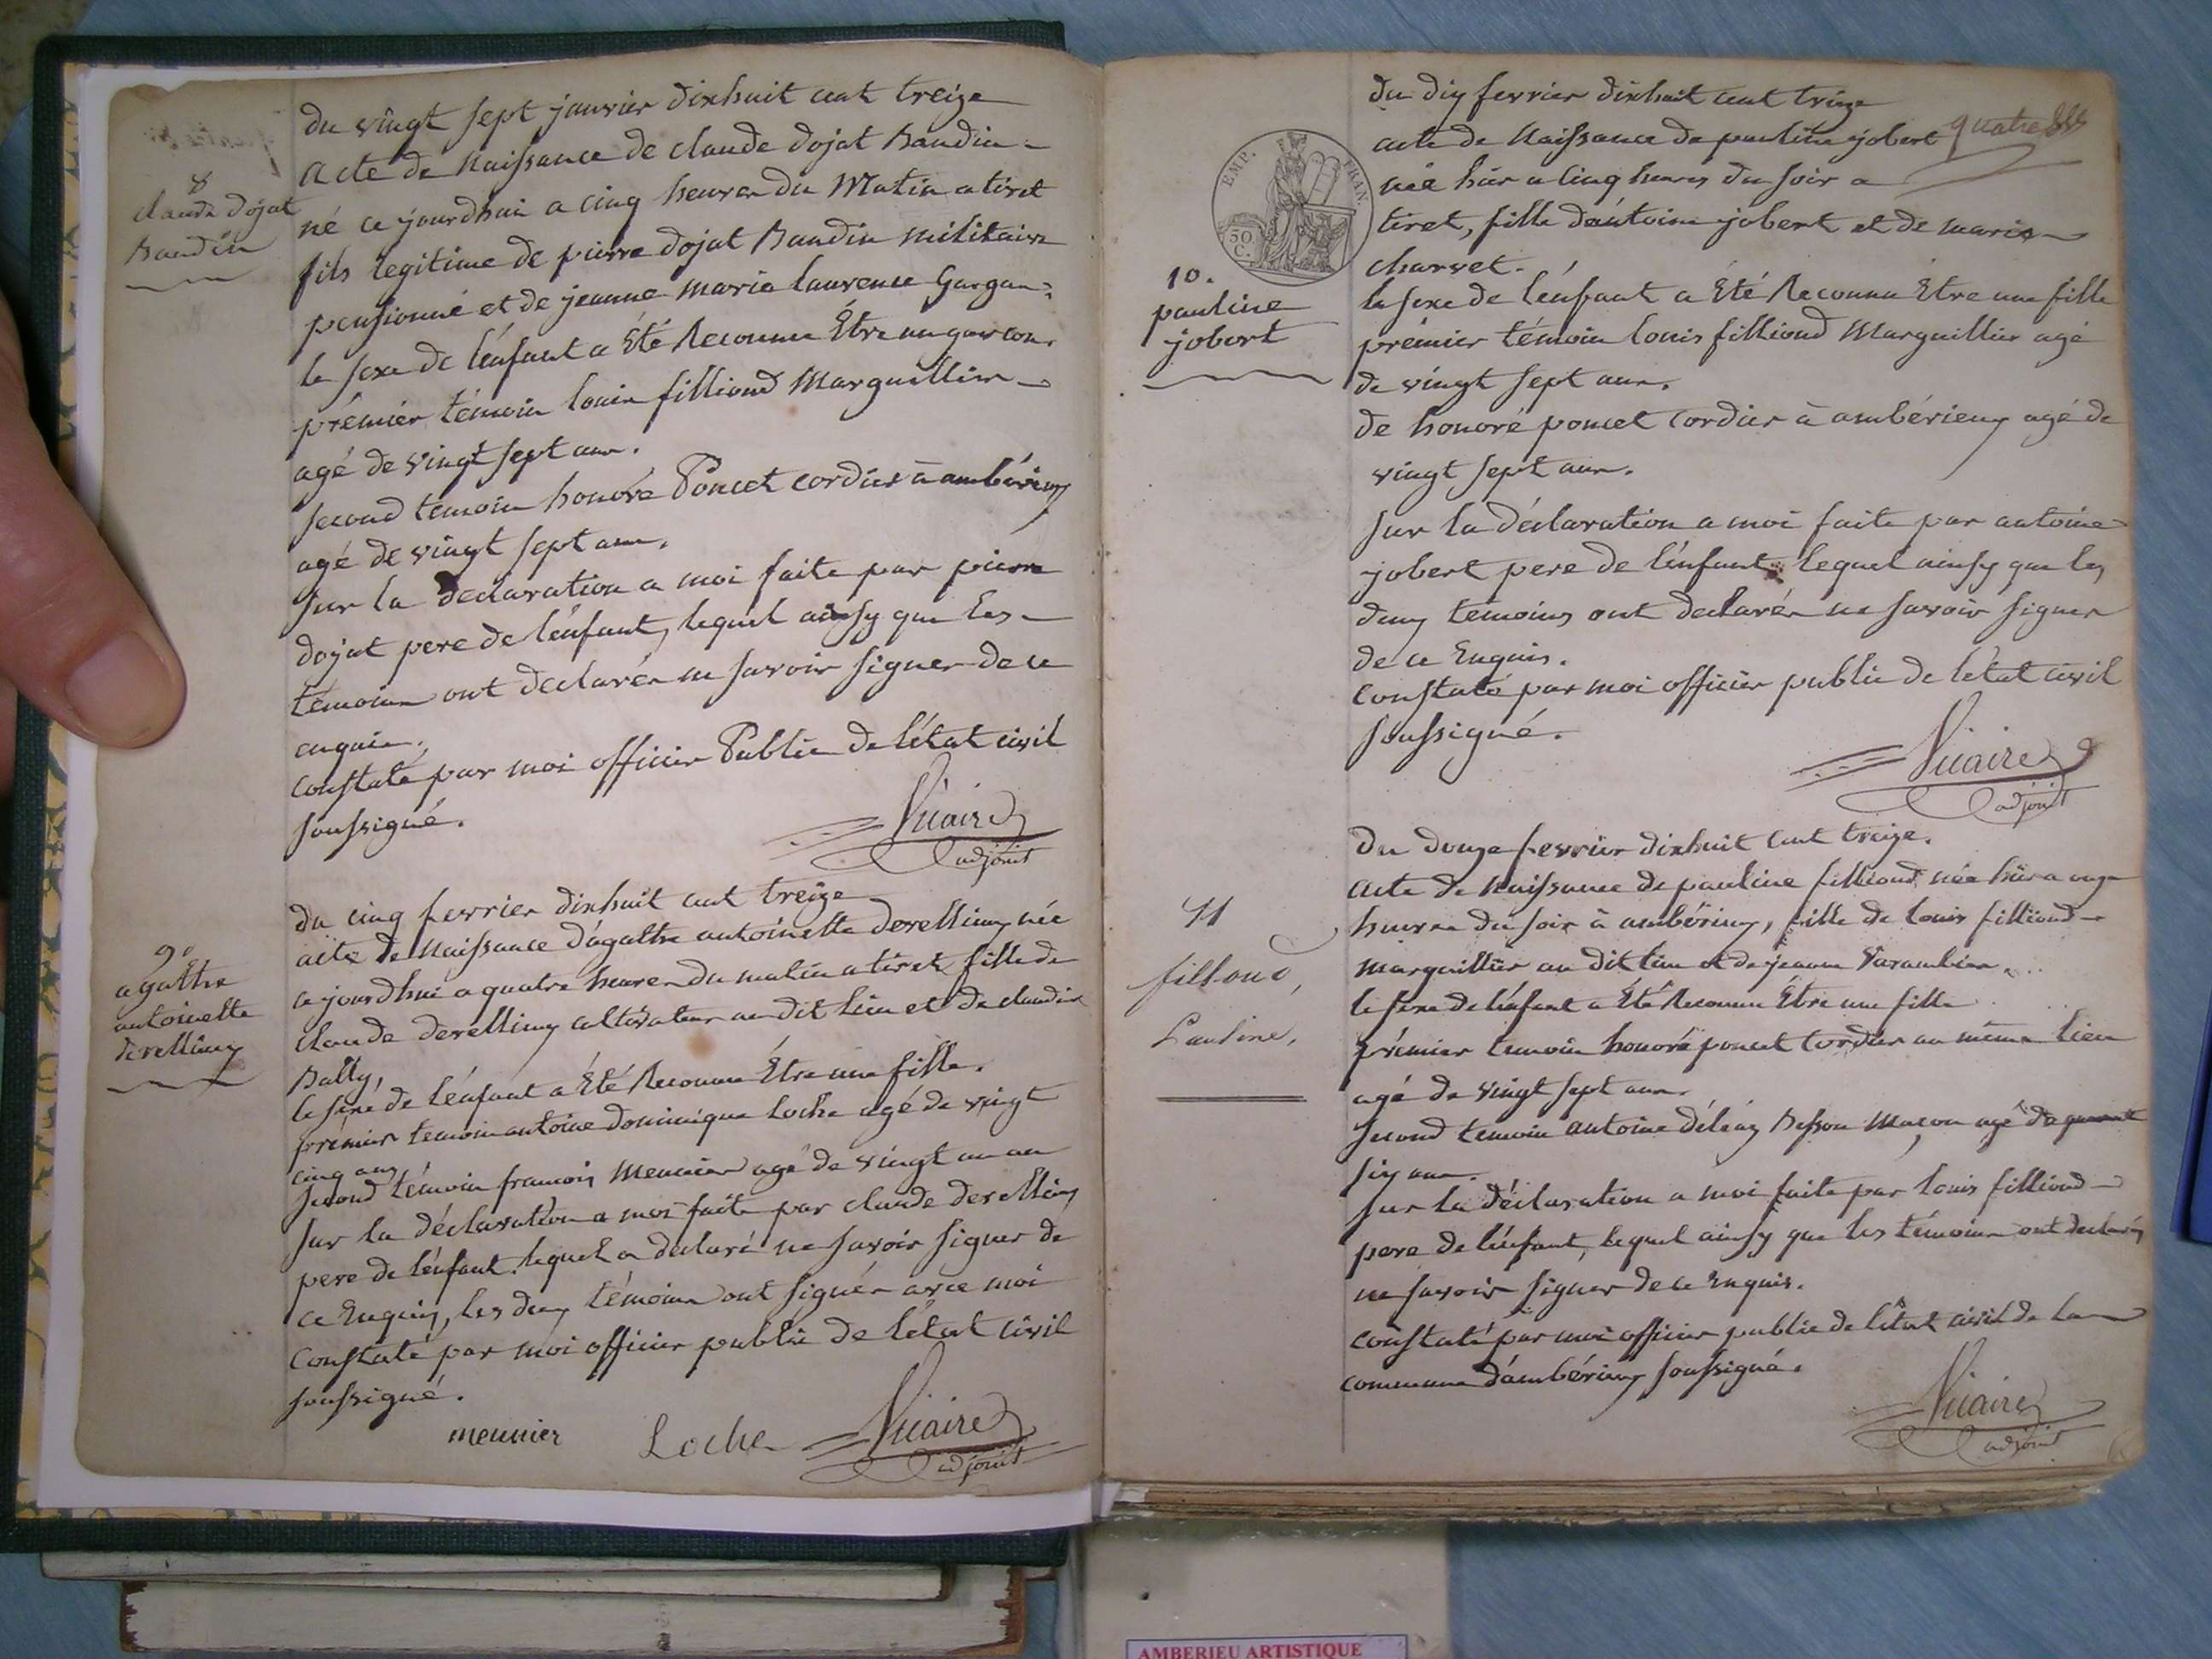 du vingt sept janvier dixhuit cent treize
acte de Naissance de claude dojat Baudin
8
claude dojat
Baudin
né ce jourdhui a cinq heures du Matin a tiret
fils legitime de pierre dojat Baudin militaire
pensionné et de jeanne marie laurence
le sexe de l'énfant a Été Reconnu Être un garcon.
prémiér témoin louis filliond Marguillier
agé de vingt sept ans.
second temoin honoré Poncet cordier à ambérieux
agé de vingt sept ans.
sur la declaration a moi faite par pierre
dojat pere de l'énfant, lequel ainsy que les
témoins ont declarés ne savoir signer de ce
enquis.
Constaté par moi officier Public de l'état civil
soussigné.
Vicaire
adjoint
du cinq fevrier dixhuit cent treize
9
agathe
antoinette
derellieux
acte de Naissance d'agathe antoinette derellieux née
ce jourdhui a quatre heures du matin a tiret, fille de
claude derellieux cultivateur au dit lieu et de claudine
Bally,
le sexe de l'énfant a Été Reconnu Être une fille.
prémier temoin antoine dominique Loche agé de vingt
cinq ans
second témoin francois Meunier agé de vingt un an
sur la déclaration a moi faite par claude derellieux
pere de l'énfant, lequel a declaré ne savoir signer de
ce Enquis, les deux témoins ont signés avec moi
Constaté par moi officier public de l'état civil
soussigné.
meunier Loche Vicaire
adjoint
du dix fevrier dixhuit cent treize
quatre
acte de Naissance de pauline jobert
EMP. FRAN.
50
C.
née hier a cinq heures du soir a
tiret, fille d'antoine jobert et de marie
charvet.
10.
pauline
jobert
le sexe de l'énfant a Été Reconnu Être une fille
prémier témoin louis filliond Marguillier agé
de vingt sept ans.
de honoré poncet Cordier à ambérieux agé de
vingt sept ans.
sur la déclaration a moi faite par antoine
jobert pere de l'énfant lequel ainsy que les
deux temoins ont declarés ne savoir signer
de ce Enquis.
Constaté par moi officier public de l'état civil
soussigné.
Vicaire
adjoint
du douze fevrier dixhuit cent treize.
11
filliond,
Pauline,
acte de Naissance de pauline filliond née hier a onze
heures du soir à ambérieux, fille de louis filliond
marguillier au dit lieu et de jeanne Varambier
le sexe de l'énfant a Été Reconnu Être une fille
prémier temoin honoré poncet Cordier au même lieu
agé de vingt sept ans.
second temoin antoine Besson Maçon agé de
six ans.
sur la déclaration a moi faite par louis filliond
pere de l'énfant, lequel ainsy que les témoins ont declarés
ne savoir signer de ce Enquis.
constaté par moi officier public de l'état civil de la
commune d'ambérieux soussigné.
Vicaire
adjoint
AMBERIEU ARTISTIQUE